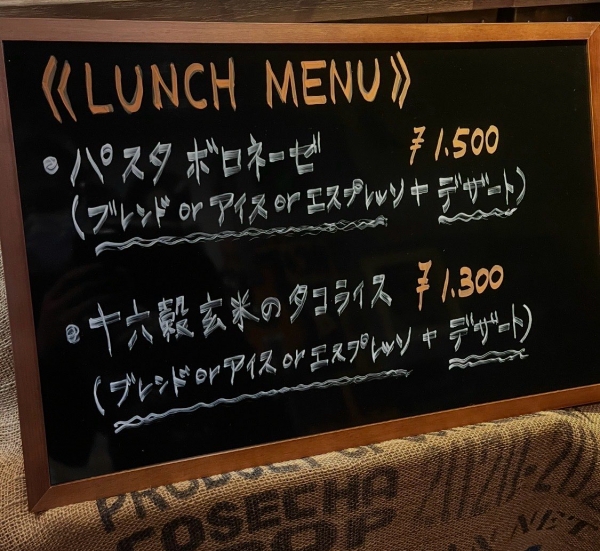 《LUNCH MENU》
・パスタ ボロネーゼ ¥1.500
(ブレンド or アイス or エスプレッソ + デザート)
・十六穀玄米のタコライス ¥1.300
(ブレンド or アイス or エスプレッソ + デザート)
PRODUCT OF
COSECHA
2020-202
NET